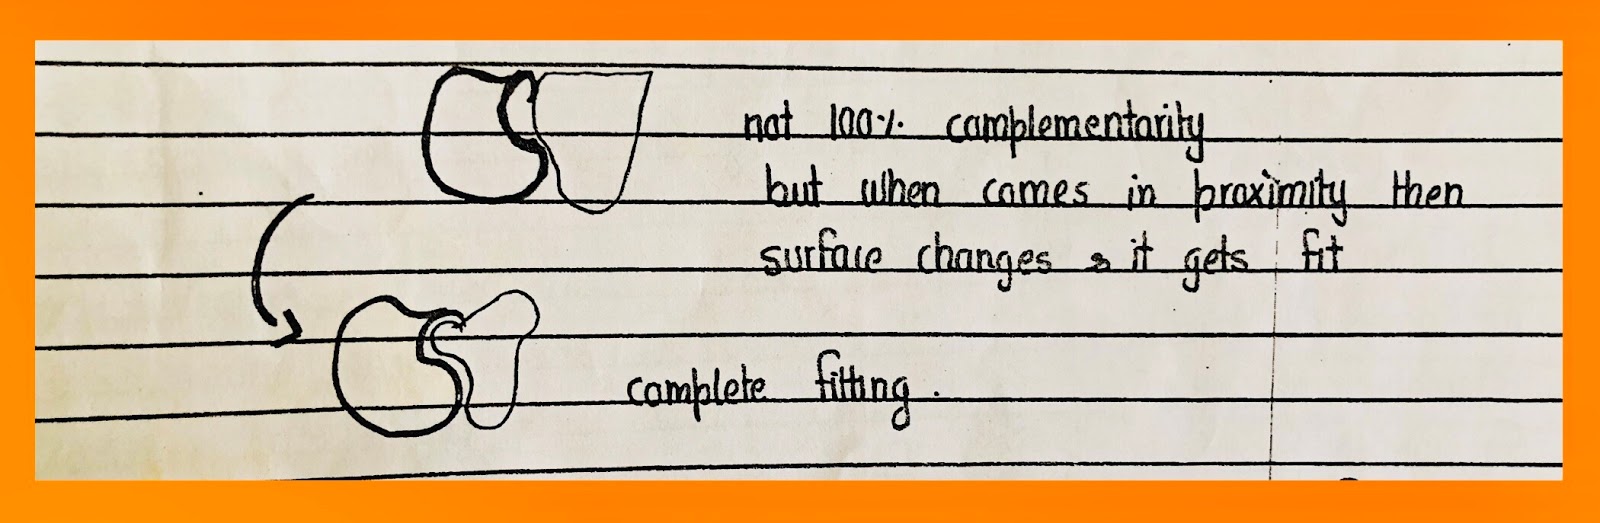 not 100% complementarity
but when comes in proximity then
surface changes & it gets fit
complete fitting.